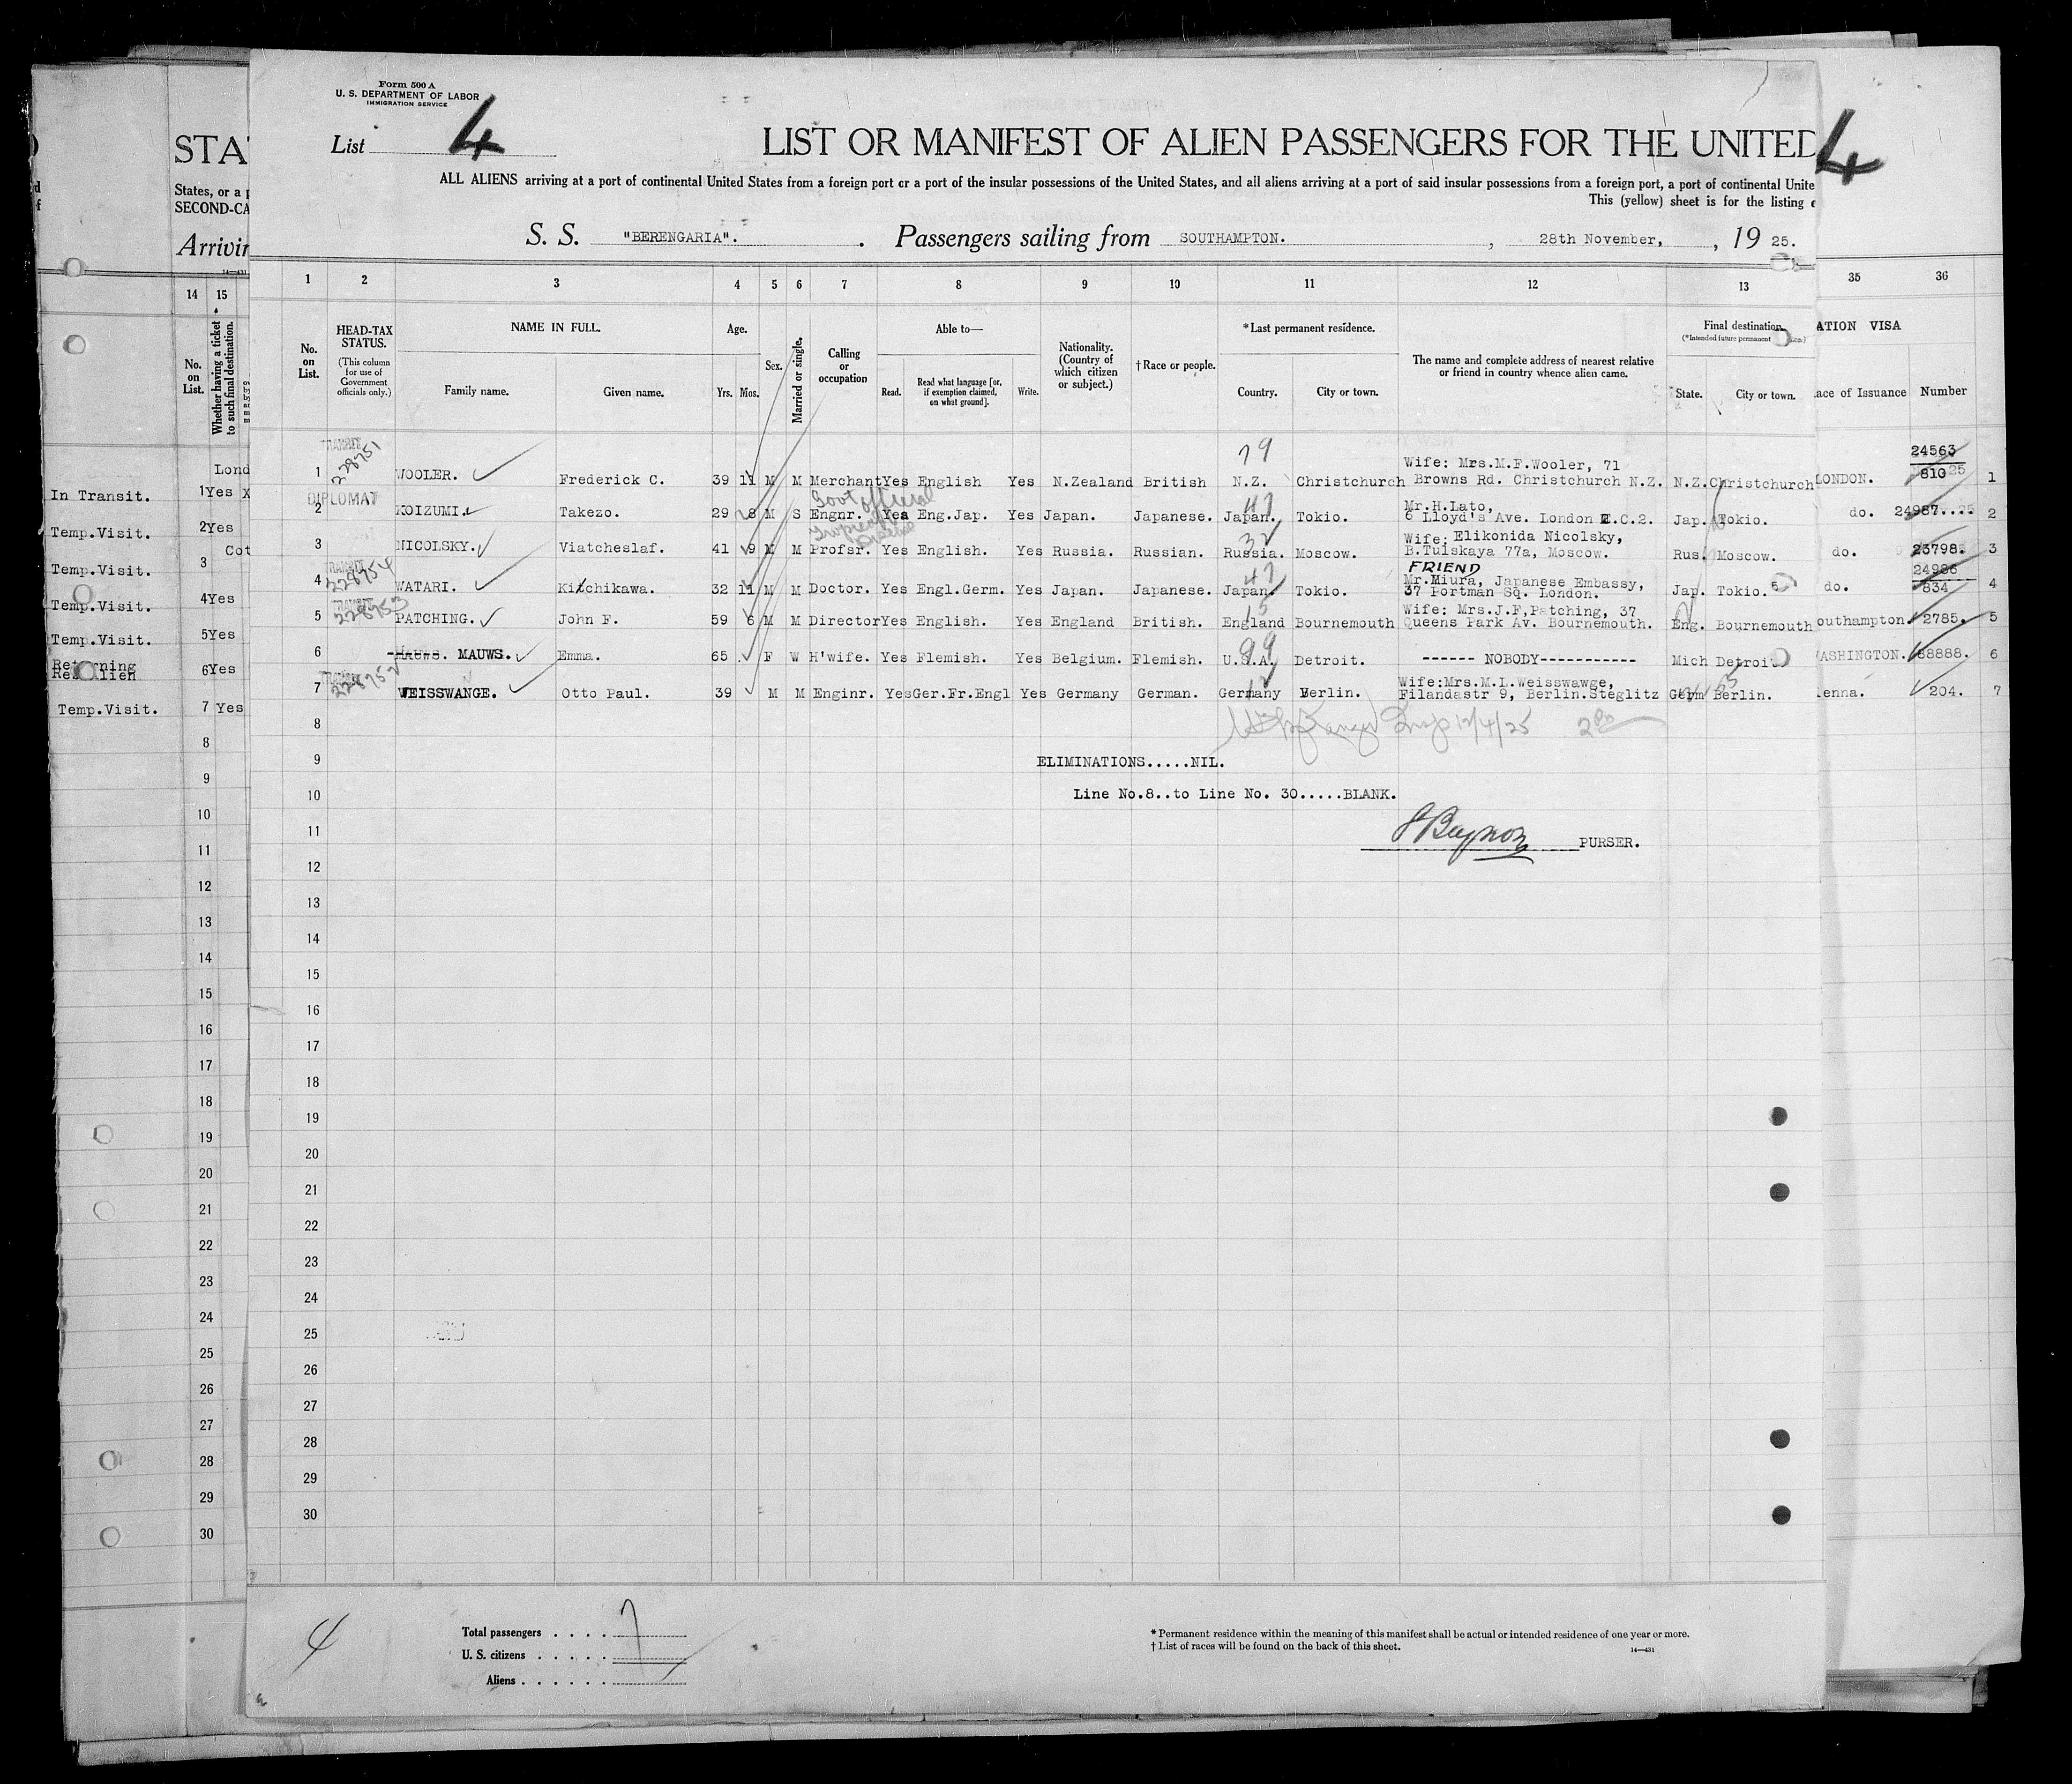 Form 500 A
U. S. DEPARTMENT OF LABOR
IMMIGRATION SERVICE
List 4
LIST OR MANIFEST OF ALIEN PASSENGERS FOR THE UNITED
4
STA
ALL ALIENS arriving at a port of continental United States from a foreign port or a port of the insular possessions of the United States, and all aliens arriving at a port of said insular possessions from a foreign port, a port of continental Unite
This (yellow) sheet is for the listing
States, or a p
SECOND-CA
Arrivin
S. S. "BERENGARIA". Passengers sailing from SOUTHAMPTON. , 28th November, , 19 25.
14 15 1 2 3 4 5 6 7 8 9 10 11 12 13 35 36
No. on List.
Whether having a ticket to such final destination.
No. on List.
HEAD-TAX STATUS.
(This column for use of Government officials only.)
NAME IN FULL.
Family name. Given name.
Age.
Yrs. Mos.
Sex.
Married or single.
Calling or occupation
Able to—
Read. Read what language [or, if exemption claimed, on what ground]. Write.
Nationality. (Country of which citizen or subject.)
†Race or people.
*Last permanent residence.
Country. City or town.
The name and complete address of nearest relative or friend in country whence alien came.
Final destination.
(*Intended future permanent
State. City or town.
ATION VISA
ace of Issuance Number
In Transit. 1 Yes X Lond
TRANSIT 228751
1 WOOLER. Frederick C. 39 11 M M Merchant Yes English Yes N.Zealand British N.Z. Christchurch Wife: Mrs.M.F.Wooler, 71 Browns Rd. Christchurch N.Z. N.Z. Christchurch LONDON. 24563 810 1
79
Temp.Visit. 2 Yes
DIPLOMAT
2 KOIZUMI. Takezo. 29 8 M S Engnr. Yes Eng.Jap. Yes Japan. Japanese. Japan. Tokio. Mr.H.Lato, 6 Lloyd's Ave. London E.C.2. Jap. Tokio. do. 24987.... 2
Govt official
47
Temp.Visit. 3 Cot
3 NICOLSKY. Viatcheslaf. 41 9 M M Profsr. Yes English. Yes Russia. Russian. Russia. Moscow. Wife: Elikonida Nicolsky, B.Tulskaya 77a, Moscow. Rus. Moscow. do. 23798. 3
32
Temp.Visit. 4 Yes
TRANSIT 228754
4 WATARI. Kitchikawa. 32 11 M M Doctor. Yes Engl.Germ. Yes Japan. Japanese. Japan. Tokio. FRIEND Mr.Miura, Japanese Embassy, 37 Portman Sq. London. Jap. Tokio. do. 24986 834 4
47
Temp.Visit. 5 Yes
TRANSIT 228753
5 PATCHING. John F. 59 6 M M Director Yes English. Yes England British. England Bournemouth Wife: Mrs.J.F,Patching, 37 Queens Park Av. Bournemouth. Eng. Bournemouth outhampton. 2785. 5
15
Returning Res alien 6 Yes
6 MAUWS. MAUWS. Emma. 65 F W H'wife. Yes Flemish. Yes Belgium. Flemish. U.S.A. Detroit. ------ NOBODY----------- Mich Detroit ASHINGTON. 88888. 6
99
Temp.Visit. 7 Yes
TRANSIT 228752
7 WEISSWANGE. Otto Paul. 39 M M Enginr. Yes Ger.Fr.Engl Yes Germany German. Germany Berlin. Wife:Mrs.M.L.Weisswawge, Filandastr 9, Berlin.Steglitz Germ Berlin. ienna. 204. 7
12/4/25
8
9 ELIMINATIONS.....NIL.
10 Line No.8..to Line No. 30.....BLANK.
11 PURSER.
12
13
14
15
16
17
18
19
20
21
22
23
24
25
26
27
28
29
30
8
9
10
11
12
13
14
15
16
17
18
19
20
21
22
23
24
25
26
27
28
29
30
4
Total passengers . . . . 7
U. S. citizens . . . . .
Aliens . . . . . .
*Permanent residence within the meaning of this manifest shall be actual or intended residence of one year or more.
†List of races will be found on the back of this sheet.
14—431